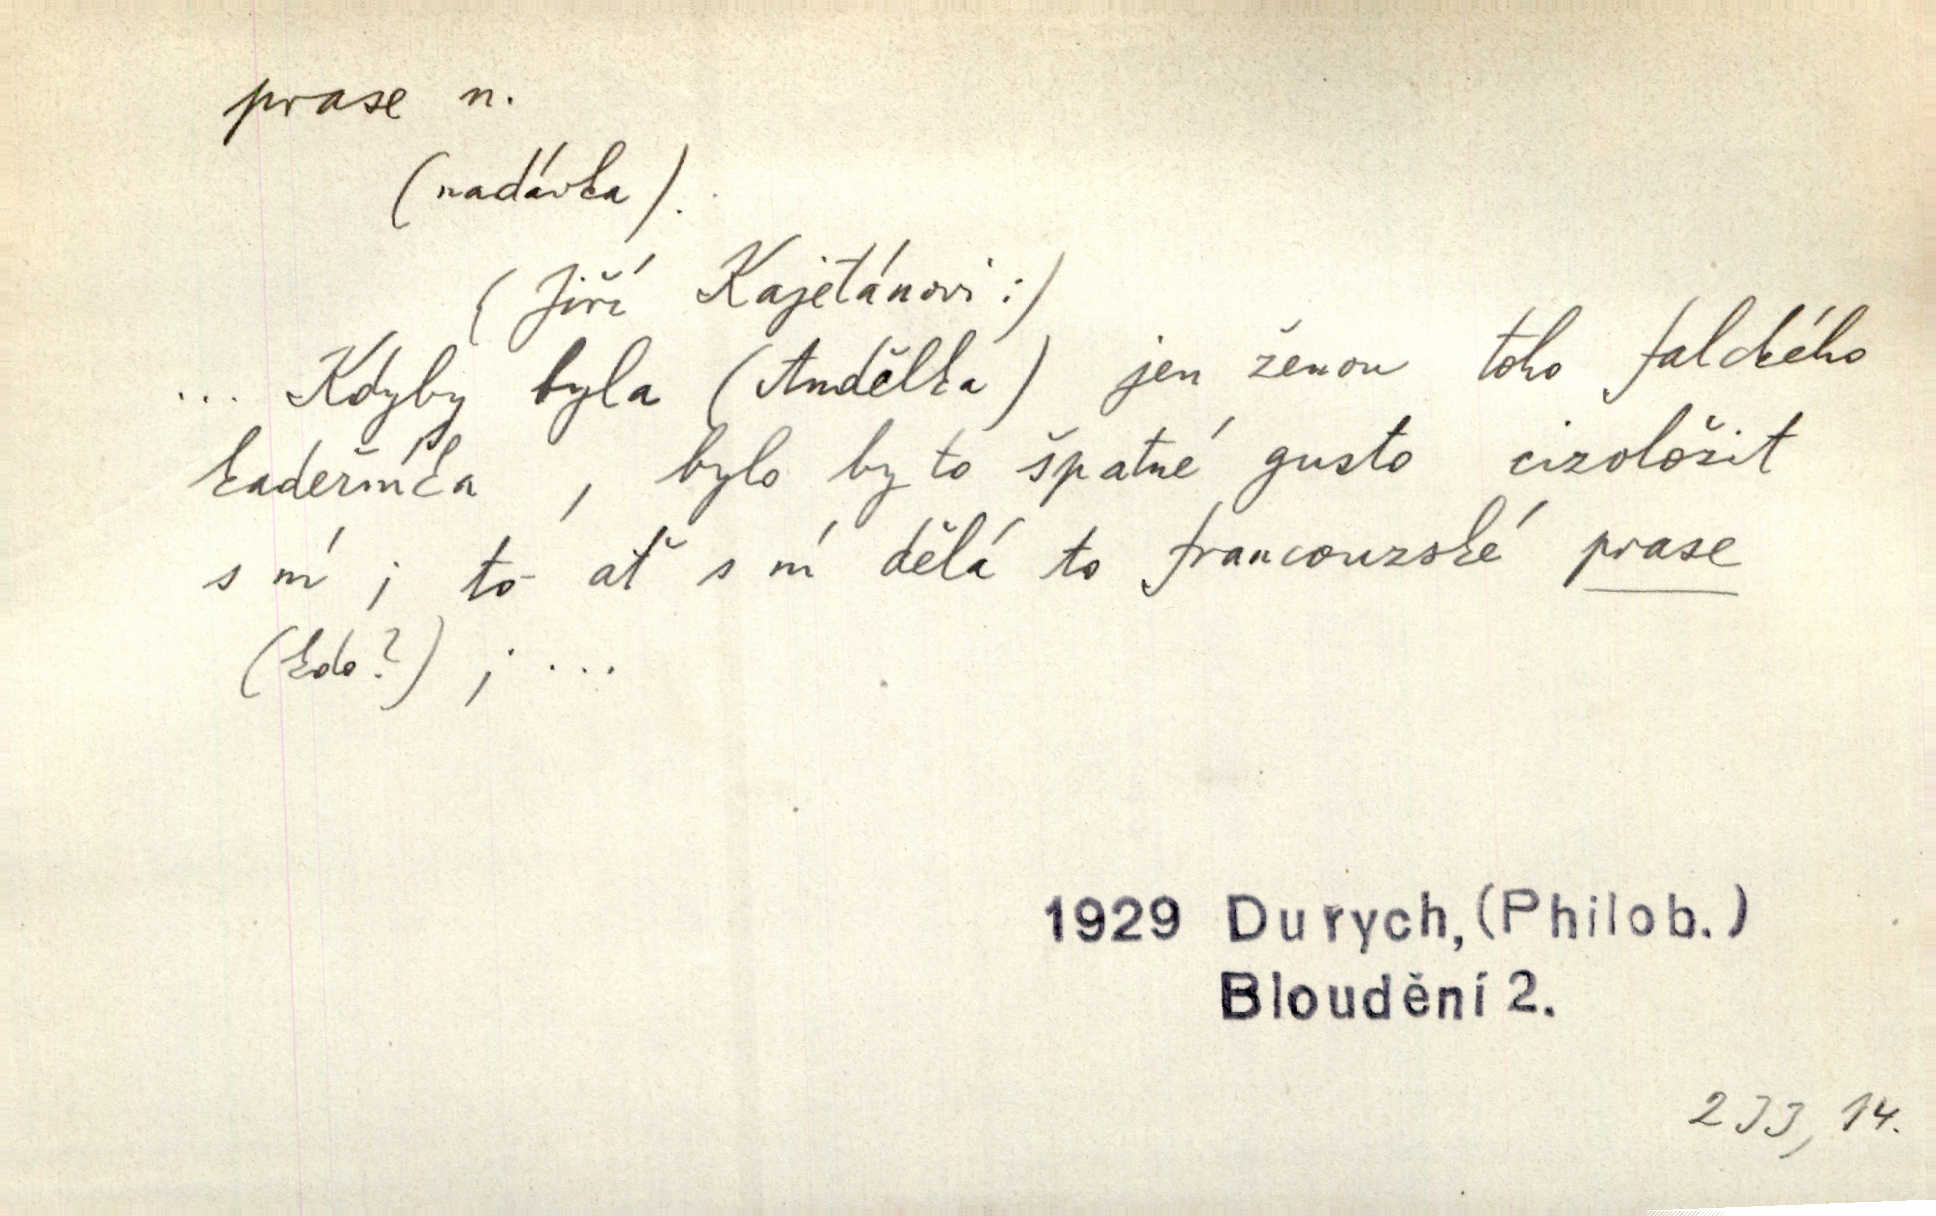 prase n.
(nadávka).
(Jiří Kajetánovi:)
... Kdyby byla (Andělka) jen ženou toho falckého
kadeřníka, bylo by to špatné gusto cizoložit
s ní; to ať s ní dělá to francouzské prase
(kdo?); ...
1929 Durych, (Philob.)
Bloudění 2.
, 14.